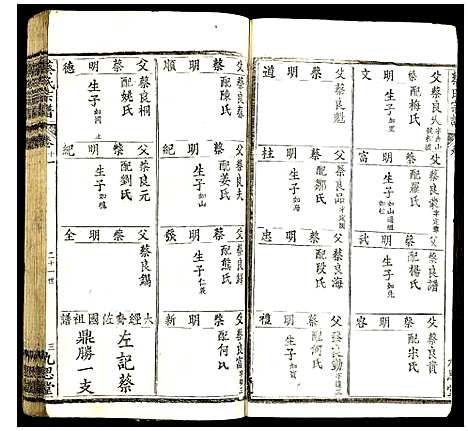 蔡明文
父蔡良大
配梅氏
生子
蔡明富
父蔡良業
配羅氏
生子
蔡明武
父蔡良譜
配楊氏
生子
蔡明容
父蔡良貴
配宗氏
蔡明道
父蔡良魁
蔡明桂
父蔡良品
配鄒氏
生子如海
蔡明忠
父蔡良海
配段氏
蔡明禮
父蔡良勤
配何氏
生子如寶
蔡明順
父蔡良泰
配陳氏
蔡明紀
父蔡良夫
配姜氏
生子如山
蔡明發
父蔡良錫
配熊氏
生子
蔡明新
父蔡良富
配何氏
蔡氏宗譜
卷十一
二十一世
三
九思堂
蔡明德
父蔡良桐
配姚氏
生子如岡
蔡明紀
父蔡良元
配劉氏
生子如槐
蔡明全
父蔡良錫
左記蔡
鼎勝一支